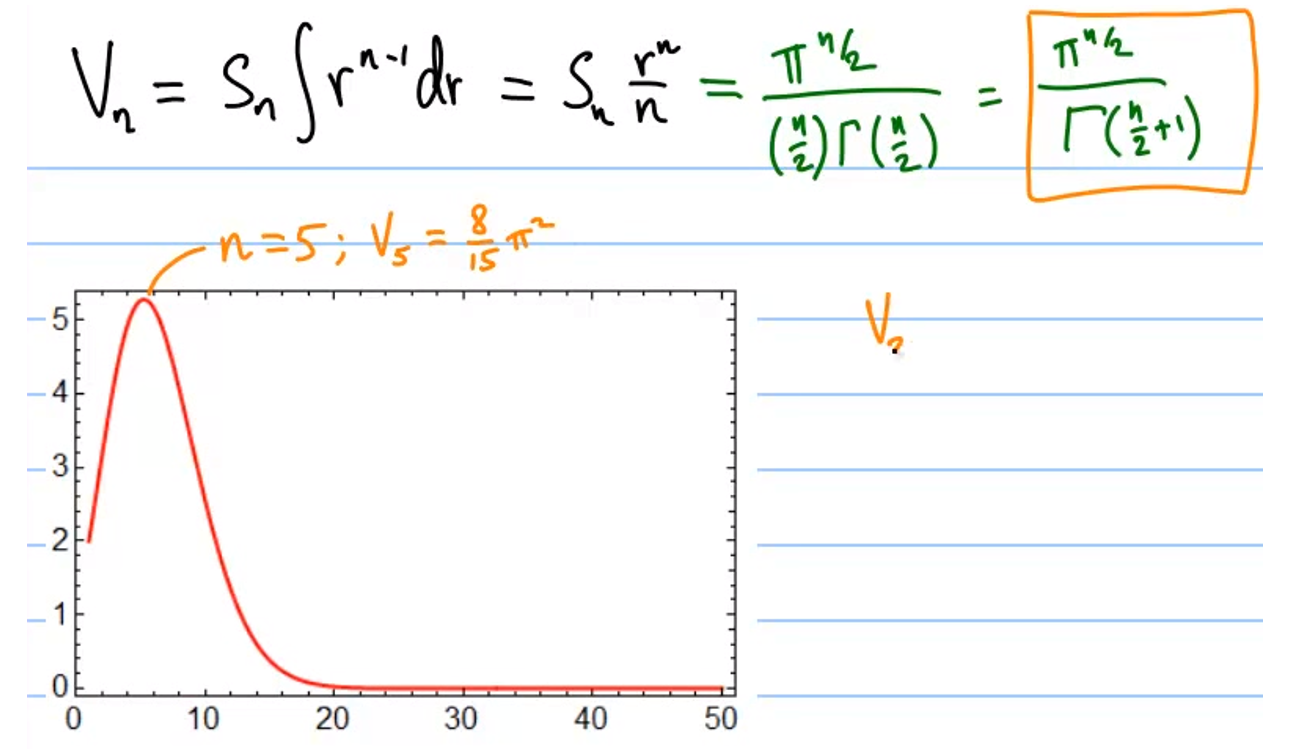 Vₙ = Sₙ ∫ rⁿ⁻¹ dr = Sₙ rⁿ/n = π^(n/2) / ((n/2) Γ(n/2)) = π^(n/2) / Γ(n/2 + 1)
n = 5 ; V₅ = 8/15 π²
V₂
5
4
3
2
1
0
0 10 20 30 40 50